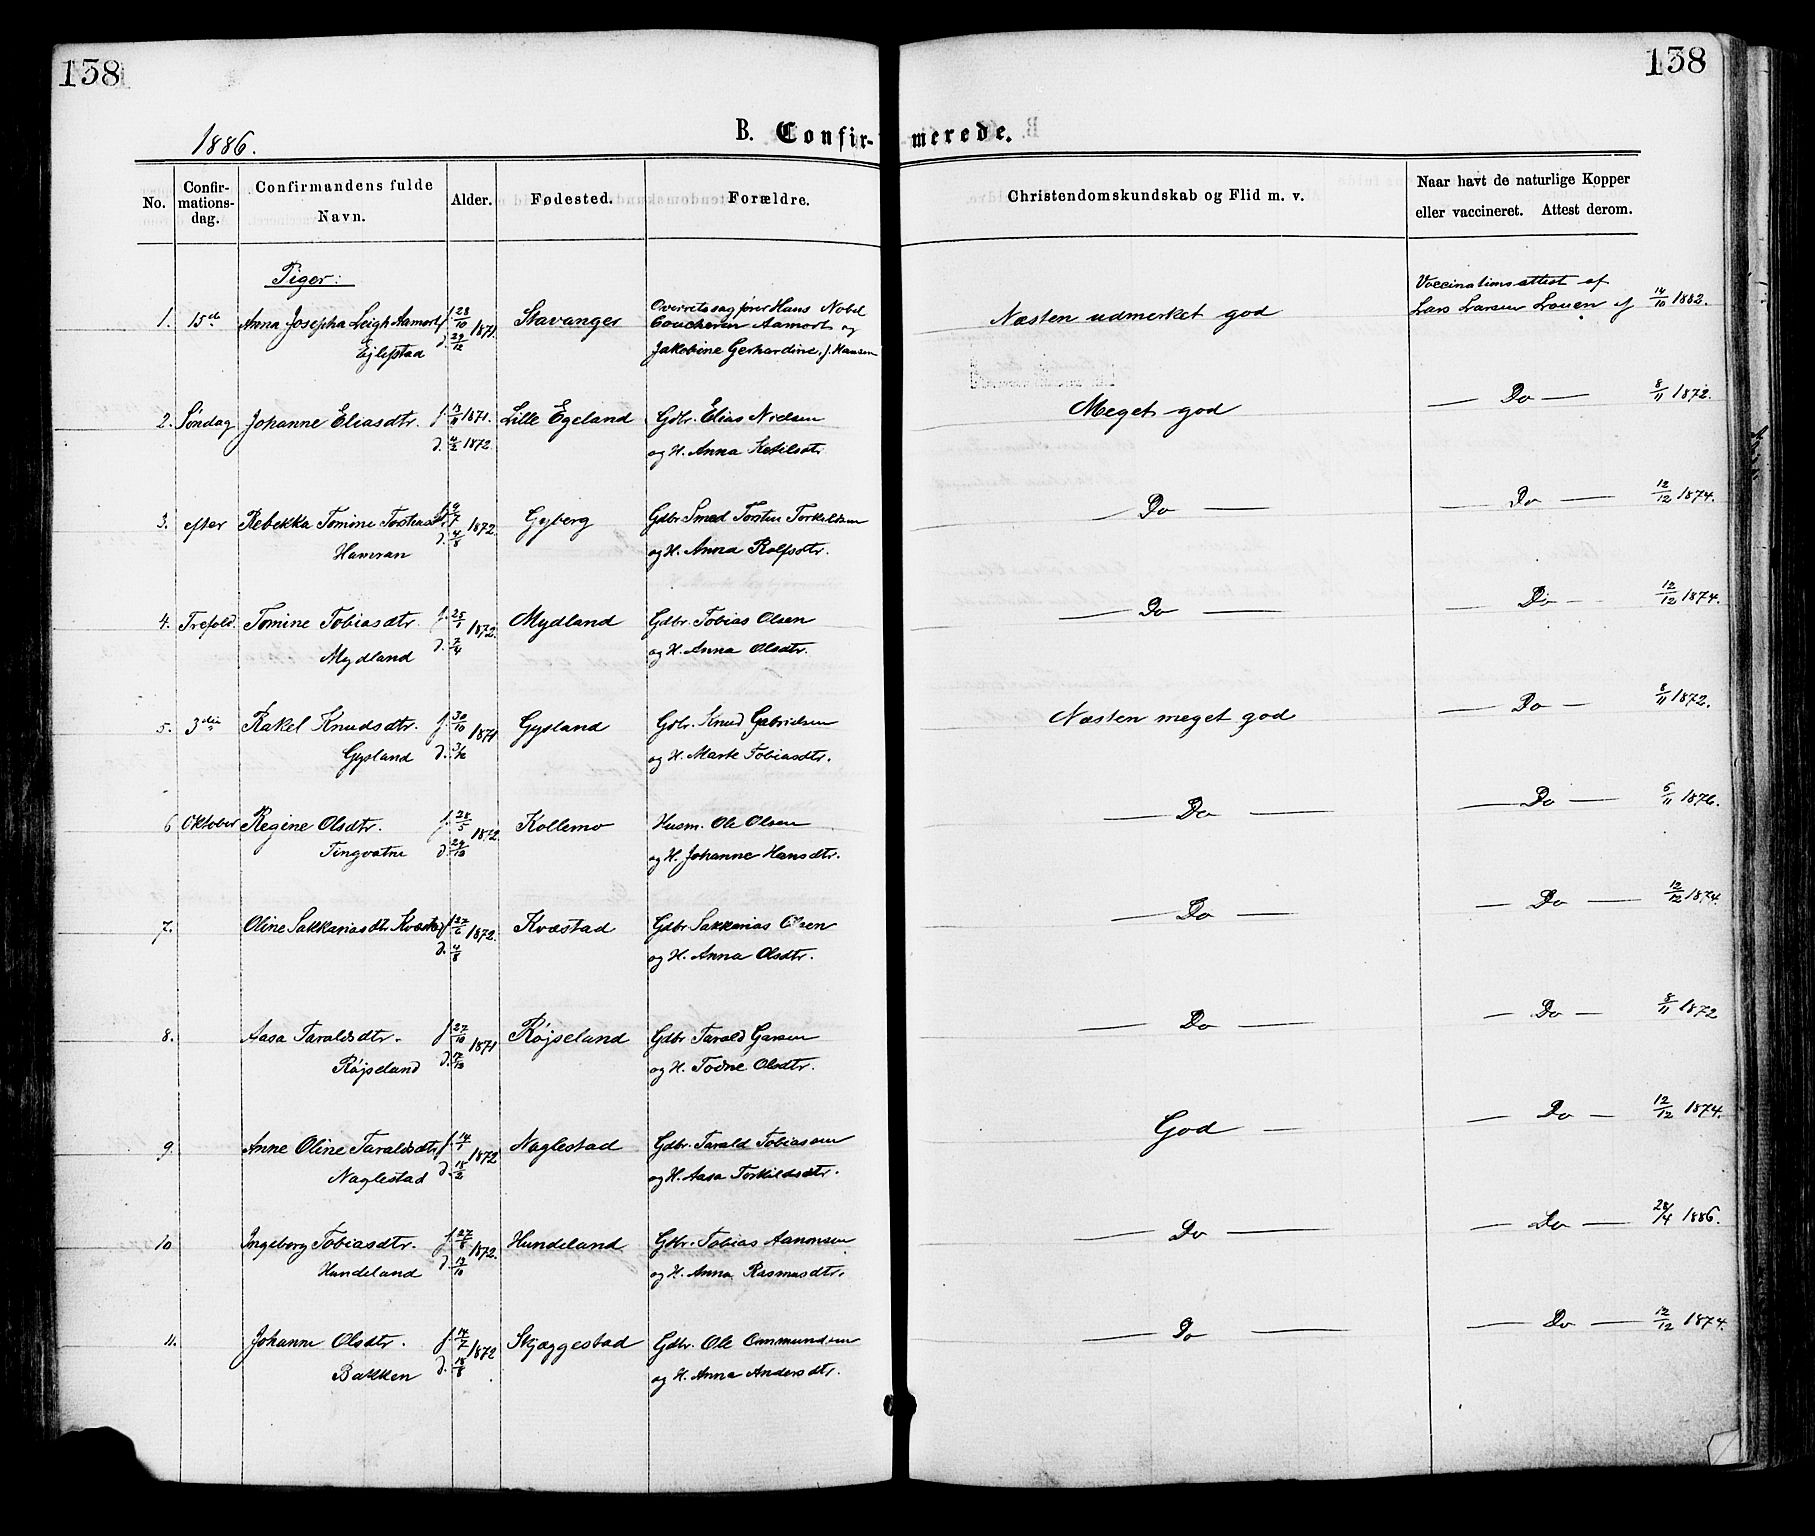 138
138
1886.
B. Confir-merede.
No.
Confir-
mations-
dag.
Confirmandens fulde
Navn.
Alder.
Fødested.
Forældre.
Christendomskundskab og Flid m. v.
Naar havt de naturlige Kopper
eller vaccineret. Attest derom.
Piger:
1. 15de Anna Josepha Leigh Aamort f. 28/10 1871. Stavanger Overretssagfører Hans Nobel
d. 29/12 Coucheron Aamort og
Ejlestad Jakobine Gerhardine f. Hansen
Næsten udmerket god
Vaccinationsattest af
Lars Larsen Lauen af 14/10 1882.
2. Søndag Johanne Eliasdtr. f. 13/11 1871. Lille Egeland Gdbr. Elias Nielsen
d. 4/2 1872. og H. Anna Ketilsdtr
Meget god — Do — 8/11 1872.
3. efter Rebekka Tomine f. 9/7 1872. Gyberg Gdbr Smed Torsten Torkildsen
Hamran d. 4/8 og H. Anna Rolfsdtr.
— Do — — Do — 12/12 1874.
4. Trefold. Tomine Tobiasdtr f. 25/1 1872. Mydland Gdbr. Tobias Olsen
Mydland d. 7/4 og H. Anna Olsdtr.
— Do — — Do — 12/12 1874.
5. 3die Rakel Knudsdtr. f. 30/10 1871 Gysland Gdbr. Knud Gabrielsen
Gysland d. og H. Marte Tobiasdtr.
Næsten meget god — Do — 8/11 1872.
6 Oktober Regine Olsdtr. f. 28/5 1872 Kollemo Husm. Ole Olsen
Tingvatne d. 29/10 og H. Johanne Hansdtr.
— Do — — Do — 6/11 1876.
7. Oline Sakkariasdtr Kvæstad f. 27/6 1872. Kvæstad Gdbr Sakkarias Olsen
d. 4/8 og H. Anna Olsdtr.
— Do — — Do — 12/12 1874.
8. Aasa Taraldsdtr. f. 27/10 1871 Røjseland Gdbr Tarald Garsen
Røjseland d. 17/12 og H. Todne Olsdtr.
— Do — — Do — 8/11 1872
9. Anne Oline Taraldsdtr f. 14/1 1872 Naglestad Gdbr. Tarald Tobiassen
Naglestad d. 18/2 og H. Aasa Torkildsdtr.
God — — Do — 12/12 1874.
10 Ingeborg Tobiasdtr. f. 27/8 1872. Hundeland Gdbr. Tobias Aanonsen
Hundeland d. 13/10 og H. Anna Rasmusdtr.
— Do — — Do — 28/4 1886.
11. Johanne Olsdtr. f. 14/7 1872 Skjæggestad Gdbr. Ole Ommundsen
Bakken d. 18/8 og H. Anna Andersdtr.
— Do — — Do — 12/12 1874.